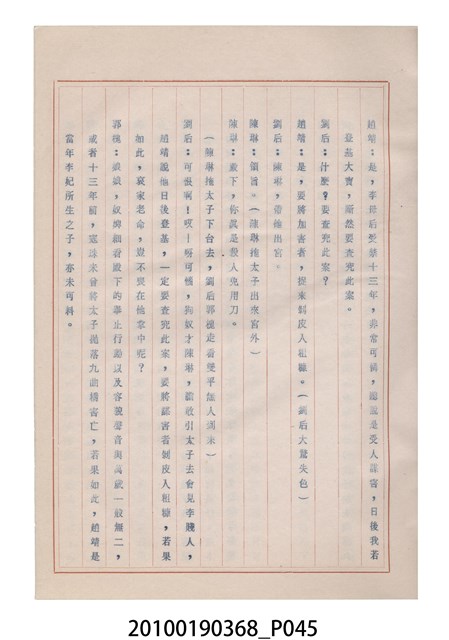 趙靖：是，李母后受禁十三年，非常可憐，總說是受人謀害，日後我若
登基大寶，斷然要查究此案。
劉后：什麼？要查究此案？
趙靖：是，要將加害者，捉來剝皮人粗糠。（劉后大驚失色）
劉后：陳琳，帶他出宮。
陳琳：領旨。（陳琳拖太子出來宮外）
陳琳：殿下，你真是殺人免用刀。
（陳琳拖太子下台去，劉后郭槐走着變乎無人到來）
劉后：可惱啊！哎！呀可憐，狗奴才陳琳，敢收引太子去會見李賤人，
趙靖說他日後登基，一定要查究此案，要將謀害者剝皮人粗糠，若果
如此，哀家老命，豈不畏在他掌中呢？
郭槐：娘娘，奴婢細看殿下的舉止行動以及容貌聲音與萬歲一般無二，
或者十三年前，寇珠未曾將太子拋落九曲橋害亡，若果如此，趙靖是
當年李妃所生之子，亦未可料。
20100190368_P045